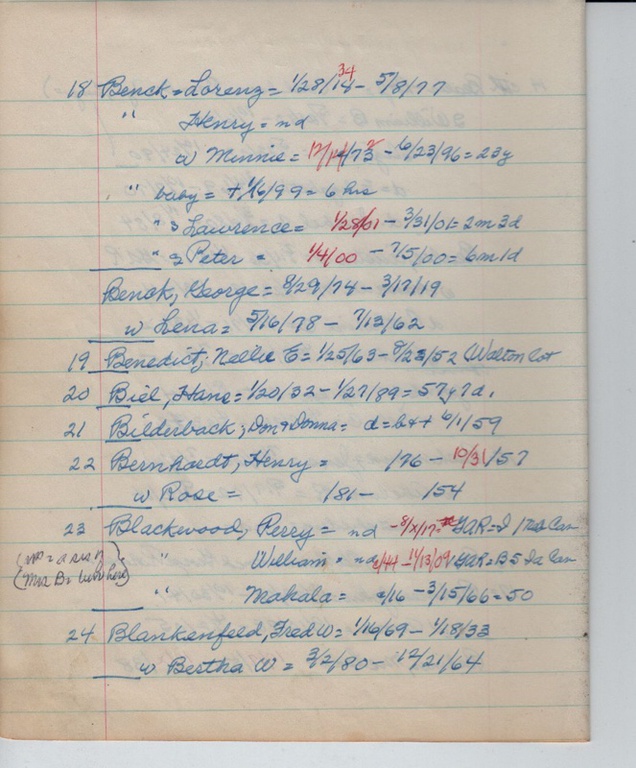 34
18 Benck = Lorenz = 1/28/14 - 5/8/77
" Henry = nd
w Minnie = 12/ /73 - 6/23/96 = 23y
" baby = + 1/16/99 = 6 hrs
" s Lawrence = 1/28/01 - 3/31/01 = 2m 3d
" s Peter = 1/4/00 - 7/5/00 = 6m 1d
Benck, George = 8/29/74 - 3/17/19
w Lena = 5/16/78 - 7/13/62
19 Benedict, Nellie E = 1/25/63 - 8/23/52 (Walton lot
20 Biel, Hans = 1/20/32 - 1/27/89 = 57y 7d.
21 Bilderback, Don & Donna = d = b & + 6/1/59
22 Bernhardt, Henry = 176 - 10/31/57
w Rose = 181 - 154
23 Blackwood, Perry = nd - 8/x/17 = GAR = I 1 Cav
" William = nd c/44 - 1/13/09 GAR = B 5 Ia Cav
(Mrs B = here)
" Mahala = c/16 - 3/15/66 = 50
24 Blankenfeld, Fred W = 1/16/69 - 1/18/33
w Bertha W = 3/2/80 - 12/21/64